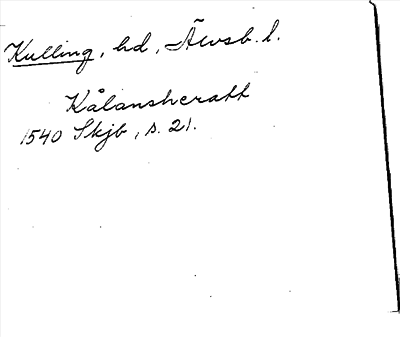 Kulling, hd, Älvsb. l.
Kålansheratt
1540 Skjb, s. 21.